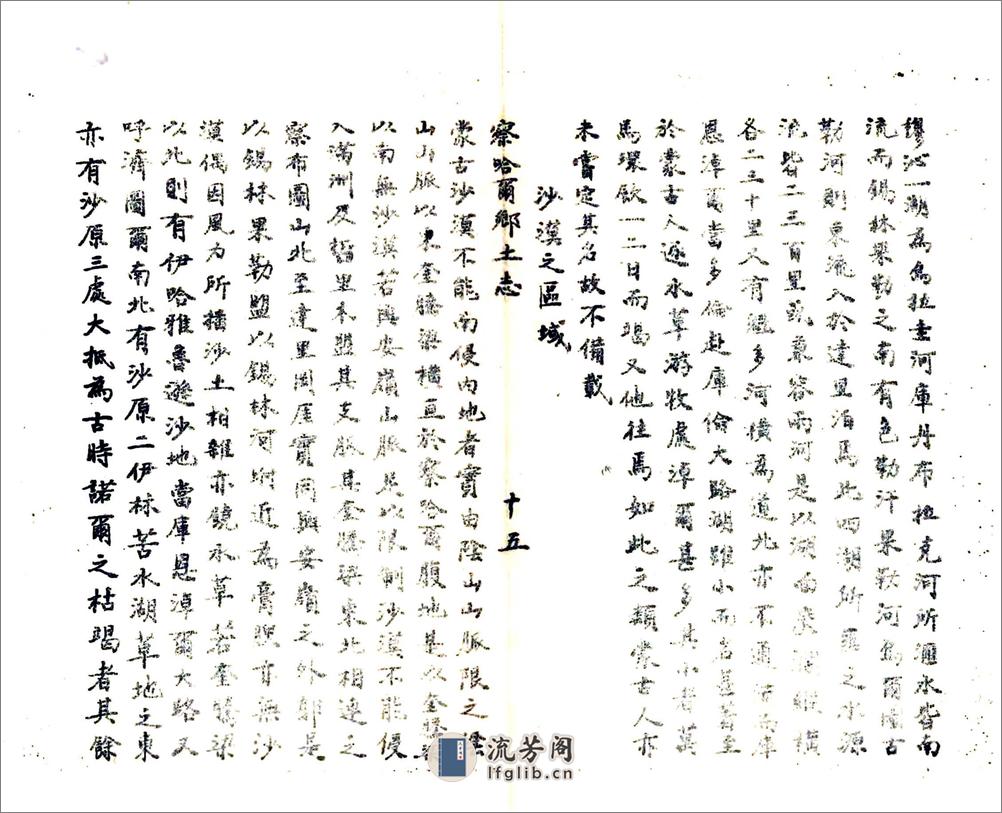 沁一湖為烏拉圭河庫丹布拉克河所瀦水皆南
流而錫林果勒之南有色勒汗果勒河烏爾圖古
勒河則東流入於達里泊焉此四湖所匯之水源
流皆二三百里或兼容兩河是以湖面縱橫
各二三十里又有魁多河橫為道北亦不通泊而庫
恩淖爾當多倫赴庫倫大路湖雖小而名甚著至
於蒙古人逐水草游牧處淖爾甚多其小者萬
馬環飲一二日而竭又他往焉如此之類蒙古人亦
未嘗定其名故不備載
沙漠之區域
察哈爾鄉土志 十五
蒙古沙漠不能南侵內地者實由陰山山脈限之陰
山山脈以東奎騰梁橫亘於察哈爾腹地是以奎騰梁
以南無沙漠若興安嶺山脈足以限制沙漠不能侵
入滿洲及哲里木盟其支脈與奎騰梁東北相連之
察布圖山北至達里岡厓實同興安嶺之外郛是
以錫林果勒盟以錫林河附近為膏腴亦無沙
漠偶因風力所播沙土相雜亦饒水草若奎騰梁
以北則有伊哈雅魯遜沙地當庫恩淖爾大路又
呼濟圖爾南北有沙原二伊林苦水湖草地之東
亦有沙原三處大抵為古時諾爾之枯竭者其餘
流芳阁
lfglib.cn